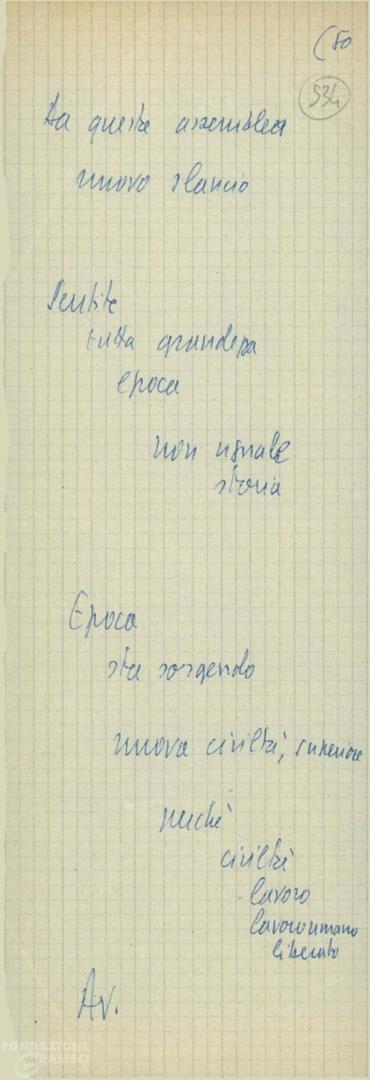 (50
534
Da questa assemblea
nuovo slancio
Sentite
tutta grandezza
epoca
non uguale
storia
Epoca
sta sorgendo
nuova civiltà, superiore
perché
civiltà
lavoro
lavoro umano
liberato
Av.
FONDAZIONE
GRAMSCI